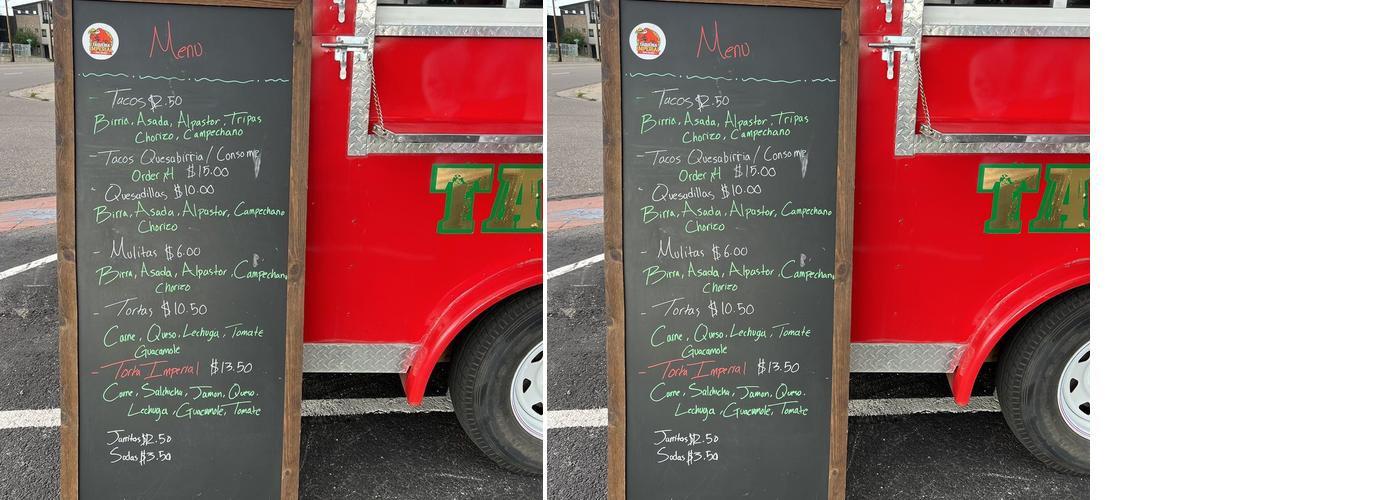 TAQUERIA
IMPERIAL
Menu
- Tacos $2.50
Birria, Asada, Alpastor, Tripas
Chorizo, Campechano
- Tacos Quesabirria / Consome
Order x4 $15.00
- Quesadillas $10.00
Birra, Asada, Alpastor, Campechano
Chorizo
- Mulitas $6.00
Birra, Asada, Alpastor, Campechano
Chorizo
- Tortas $10.50
Carne, Queso, Lechuga, Tomate
Guacamole
- Torta Imperial $13.50
Carne, Salchicha, Jamon, Queso.
Lechuga, Guacamole, Tomate
Jarritos $2.50
Sodas $3.50
TA
TAQUERIA
IMPERIAL
Menu
- Tacos $2.50
Birria, Asada, Alpastor, Tripas
Chorizo, Campechano
- Tacos Quesabirria / Consome
Order x4 $15.00
- Quesadillas $10.00
Birra, Asada, Alpastor, Campechano
Chorizo
- Mulitas $6.00
Birra, Asada, Alpastor, Campechano
Chorizo
- Tortas $10.50
Carne, Queso, Lechuga, Tomate
Guacamole
- Torta Imperial $13.50
Carne, Salchicha, Jamon, Queso.
Lechuga, Guacamole, Tomate
Jarritos $2.50
Sodas $3.50
TA